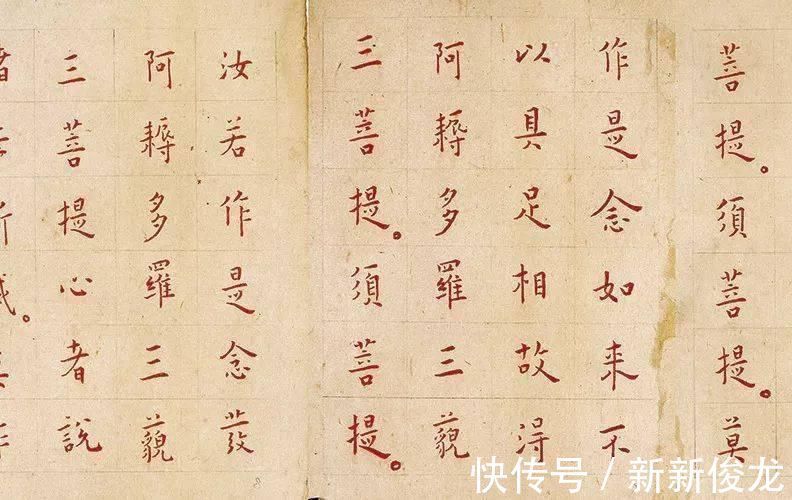 菩提。須菩提。莫
作是念如来不
以具足相故得
阿耨多羅三藐
三菩提。須菩提。
汝若作是念發
阿耨多羅三藐
三菩提心者說
快传号 / 新新俊龙